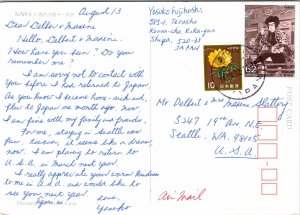 NARA
August 13
Dear Delbert & Maxine
Hello, Delbert & Maxine.
How have you been? Do you
remember me?
I am sorry not to contact with
you before I has returned to Japan.
As you know I became home-sick and
flew to Japan one month ago. Now
I am fine with my family and friends.
For me, staying in Seattle was
fun. However, it seems like a dream
now. I am planing to return to
U.S.A. in march next year.
I really appreciate your warm kindness
to me in U.S.A. and would like to
see you next year.
Love,
Yasuko
Yasuko Fujihashi
Shiga, 520-33
JAPAN
10
62
Mr Delbert & Mrs Maxine Slattery
5247 19th Ave N.E.
Seattle, WA. 98105
U.S.A.
Air Mail
POST CARD